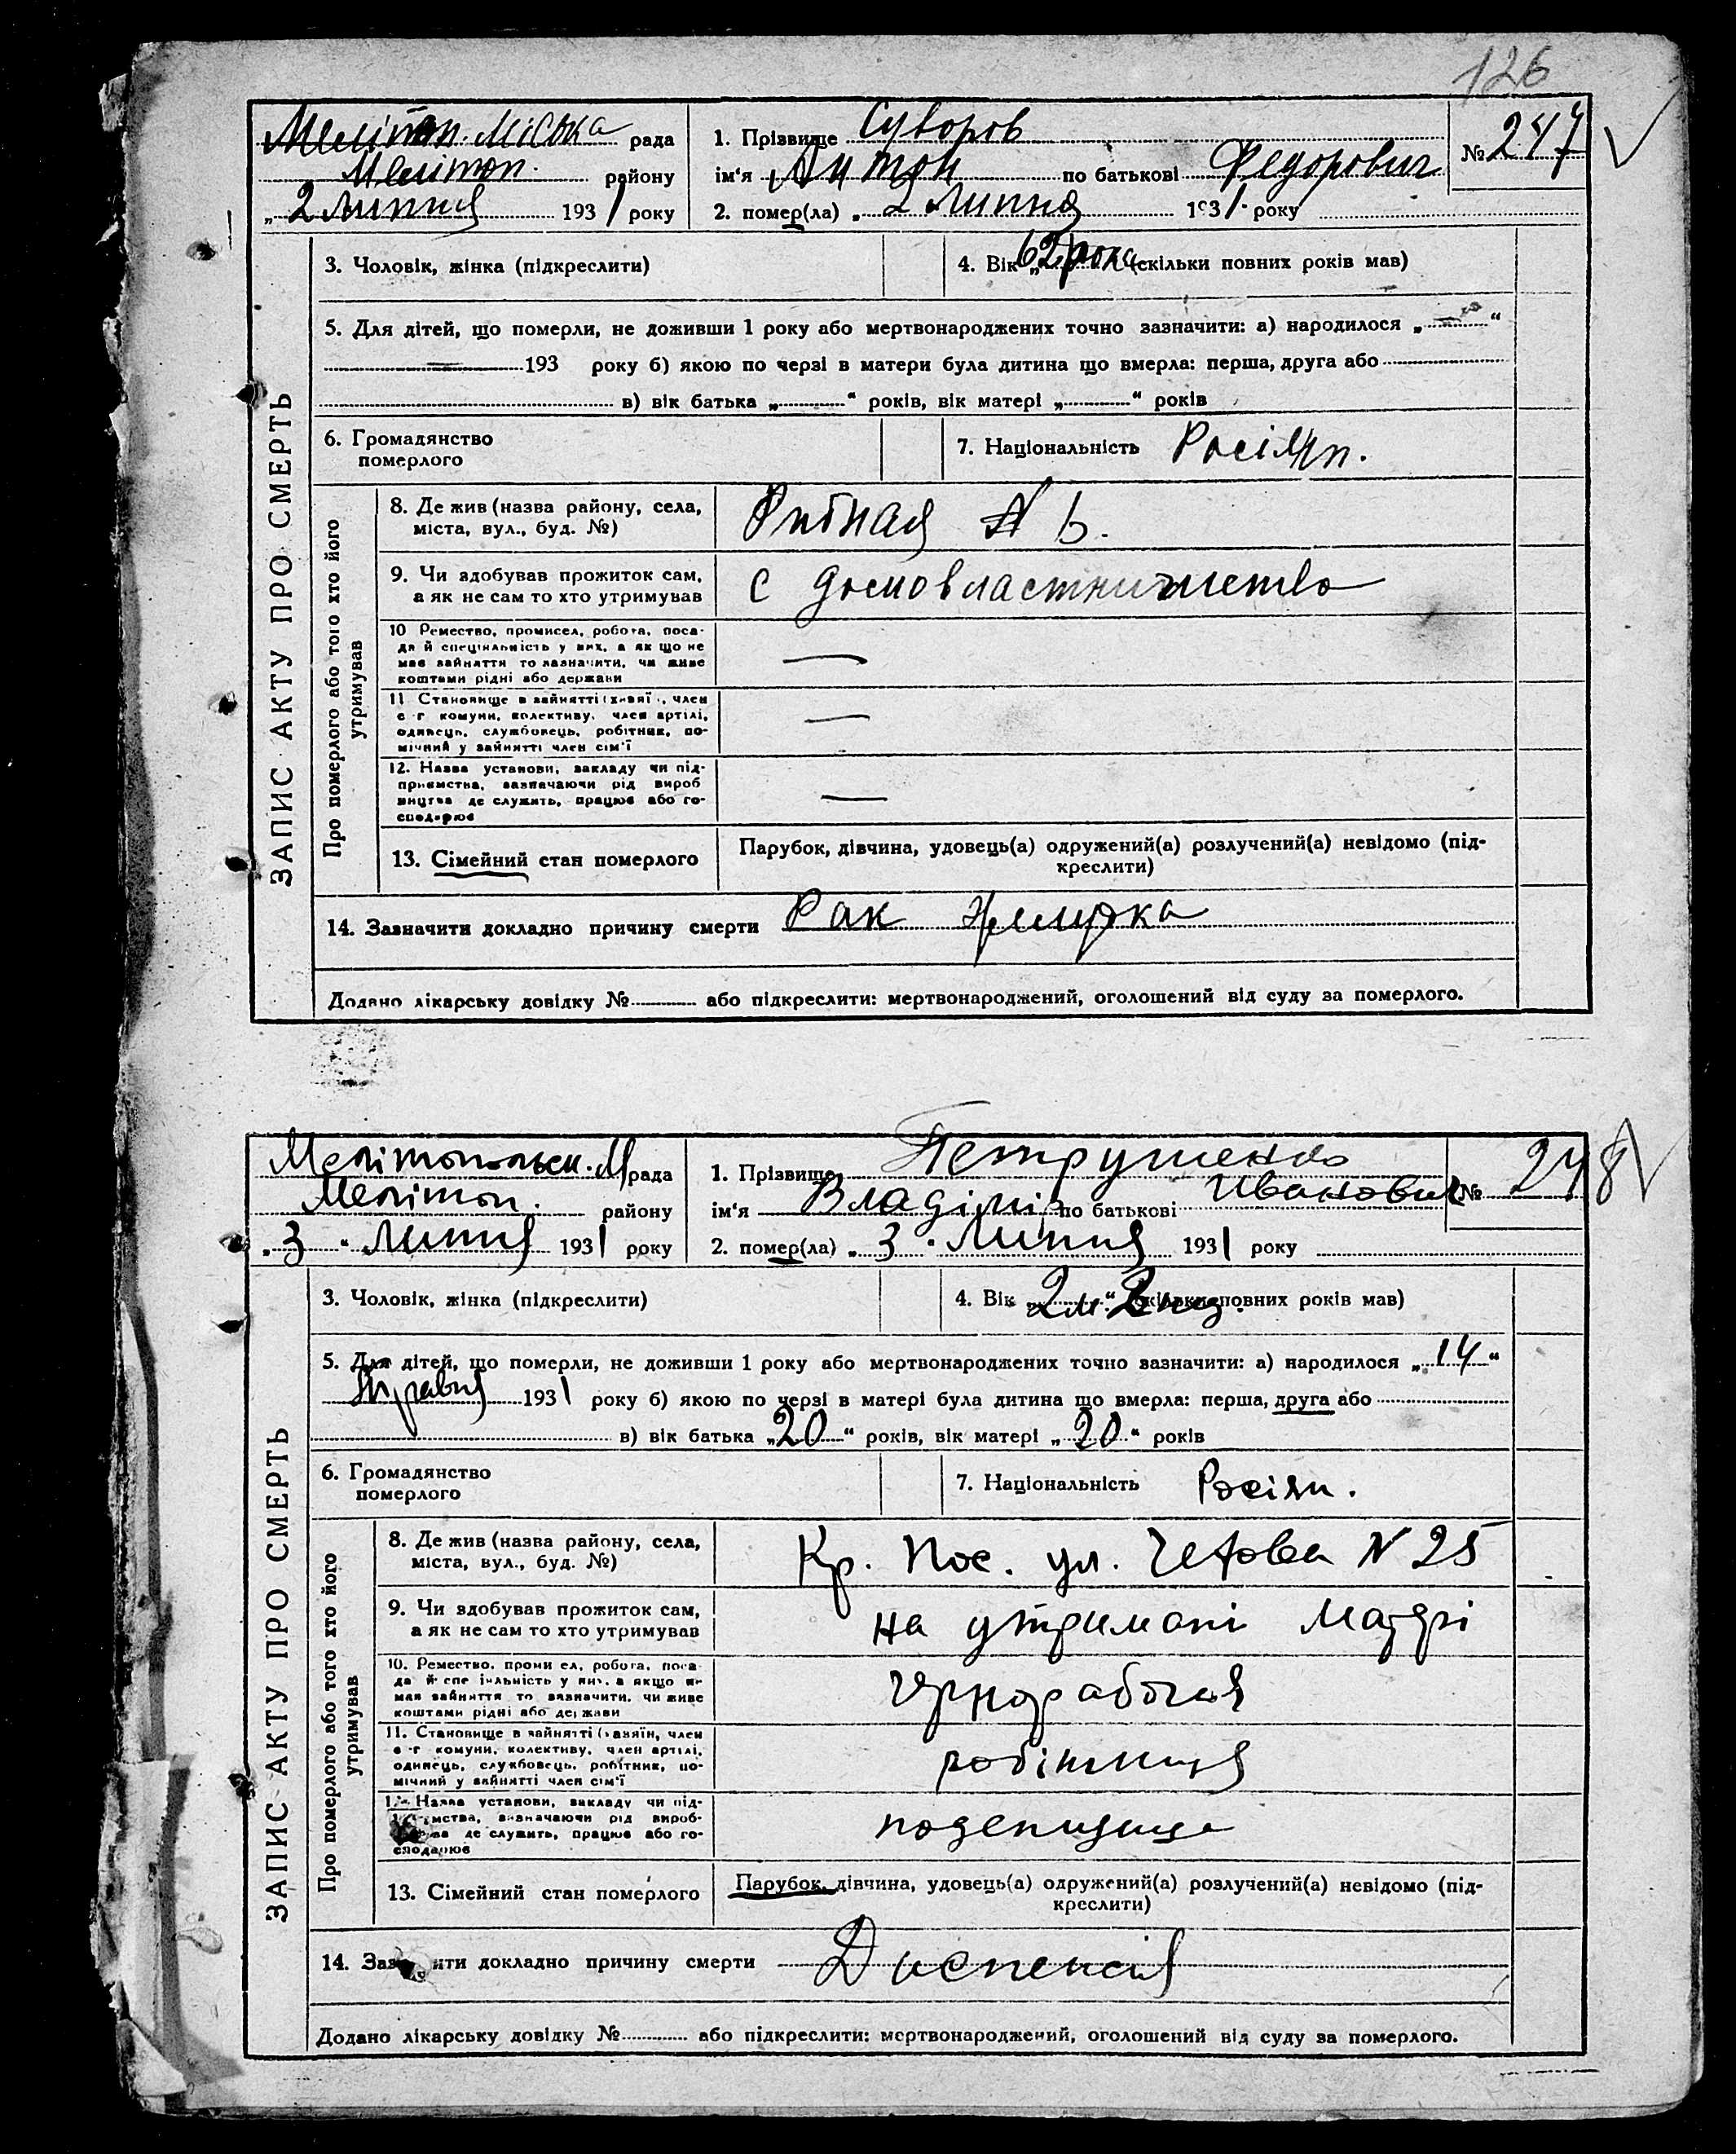 126
Меліт. Міська рада
Меліт. району
„ 2 Липня 1931 року
1. Прізвище Суворов
ім‘я Антон по батькові Федорович
2. помер(ла) „ 2 Липня 1931. року
№ 247
ЗАПИС АКТУ ПРО СМЕРТЬ
3. Чоловік, жінка (підкреслити)
4. Вік „ 62 рока (скільки повних років мав)
5. Для дітей, що померли, не доживши 1 року або мертвонароджених точно зазначити: а) народилося „ — “
— 193 року б) якою по черзі в матери була дитина що вмерла: перша, друга або
в) вік батька „ “ років, вік матері „ “ років
6. Громадянство
померлого
7. Національність Росіян.
Про померлого або того хто його
утримував
8. Де жив (назва району, села,
міста, вул., буд. №)
9. Чи здобував прожиток сам,
а як не сам то хто утримував
с домовластничество
10 Ремество, промисел, робота, поса-
да й спеціяльність у них, а як що не
має зайняття то зазначити, чи живе
коштами рідні або держави
—
11 Становище в зайнятті (хазяїн, член
с-г комуни, колективу, член артілі,
одинець, службовець, робітник, по-
мічний у зайнятті член сім‘ї
—
12. Назва установи, закладу чи під-
приємства, зазначаючи рід вироб
ництва де служить, працює або го-
сподарює
—
13. Сімейний стан померлого
Парубок, дівчина, удовець(а) одружений(а) розлучений(а) невідомо (під-
креслити)
14. Зазначити докладно причину смерти Рак желудка
Додано лікарську довідку № або підкреслити: мертвонароджений, оголошений від суду за померлого.
Мелітопольськ. М рада
Меліт. району
„ 3 “ Липня 1931 року
1. Прізвище Петрушенко
ім‘я Владімір по батькові Иванович
2. помер(ла) „ 3 . Липня 1931 року
№ 248
ЗАПИС АКТУ ПРО СМЕРТЬ
3. Чоловік, жінка (підкреслити)
4. Вік „ 2 м. “ (скільки повних років мав)
5. Для дітей, що померли, не доживши 1 року або мертвонароджених точно зазначити: а) народилося „ 14 “
Травня 1931 року б) якою по черзі в матері була дитина що вмерла: перша, друга або
в) вік батька „ 20 “ років, вік матері „ 20 “ років
6. Громадянство
померлого
7. Національність Росіян.
Про померлого або того хто його
утримував
8. Де жив (назва району, села,
міста, вул., буд. №)
Кр. Пос. ул. Чехова N 25
9. Чи здобував прожиток сам,
а як не сам то хто утримував
на утримані матері
10. Ремество, промисел, робота, поса-
да й спеціяльність у них, а якщо не
має зайняття то зазначити, чи живе
коштами рідні або держави
чернорабочая
11. Становище в зайнятті (хазяїн, член
с-г комуни, колективу, член артілі,
одинець, службовець, робітник, по-
мічний у зайнятті член сім‘ї
робітниця
12. Назва установи, закладу чи під-
приємства, зазначаючи рід вироб-
ництва де служить, працює або го-
сподарює
поденщица
13. Сімейний стан померлого
Парубок, дівчина, удовець(а) одружений(а) розлучений(а) невідомо (під-
креслити)
14. Зазначити докладно причину смерти Диспепсія
Додано лікарську довідку № або підкреслити: мертвонароджений, оголошений від суду за померлого.